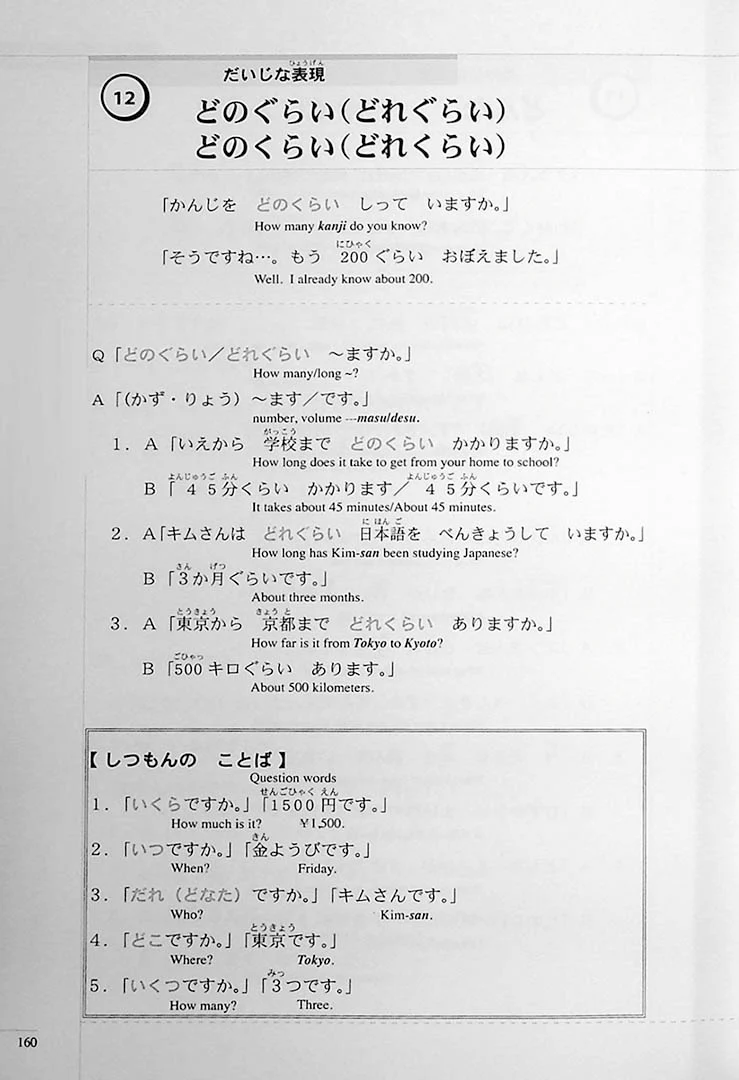 ひょうげん
だいじな表現
12
どのぐらい(どれぐらい)
どのくらい(どれくらい)
「かんじを　どのくらい　しって　いますか。」
How many kanji do you know?
にひゃく
「そうですね…。もう　200ぐらい　おぼえました。」
Well. I already know about 200.
Q「どのぐらい／どれぐらい　～ますか。」
How many/long ~?
A「(かず・りょう) ～ます／です。」
number, volume ---masu/desu.
がっこう
1. A「いえから　学校まで　どのくらい　かかりますか。」
How long does it take to get from your home to school?
よんじゅうご ふん　よんじゅうご ふん
B「45分くらい　かかります／45分くらいです。」
It takes about 45 minutes/About 45 minutes.
に ほん ご
2. A「キムさんは　どれぐらい　日本語を　べんきょうして　いますか。」
How long has Kim-san been studying Japanese?
さん　げつ
B「3か月ぐらいです。」
About three months.
とうきょう　きょう と
3. A「東京から　京都まで　どれくらい　ありますか。」
How far is it from Tokyo to Kyoto?
ごひゃっ
B「500キロぐらい　あります。」
About 500 kilometers.
【しつもんの　ことば】
Question words
せんごひゃく えん
1.「いくらですか。」「1500円です。」
How much is it?　¥1,500.
きん
2.「いつですか。」「金ようびです。」
When?　Friday.
3.「だれ（どなた）ですか。」「キムさんです。」
Who?　Kim-san.
とうきょう
4.「どこですか。」「東京です。」
Where?　Tokyo.
みっ
5.「いくつですか。」「3つです。」
How many?　Three.
160